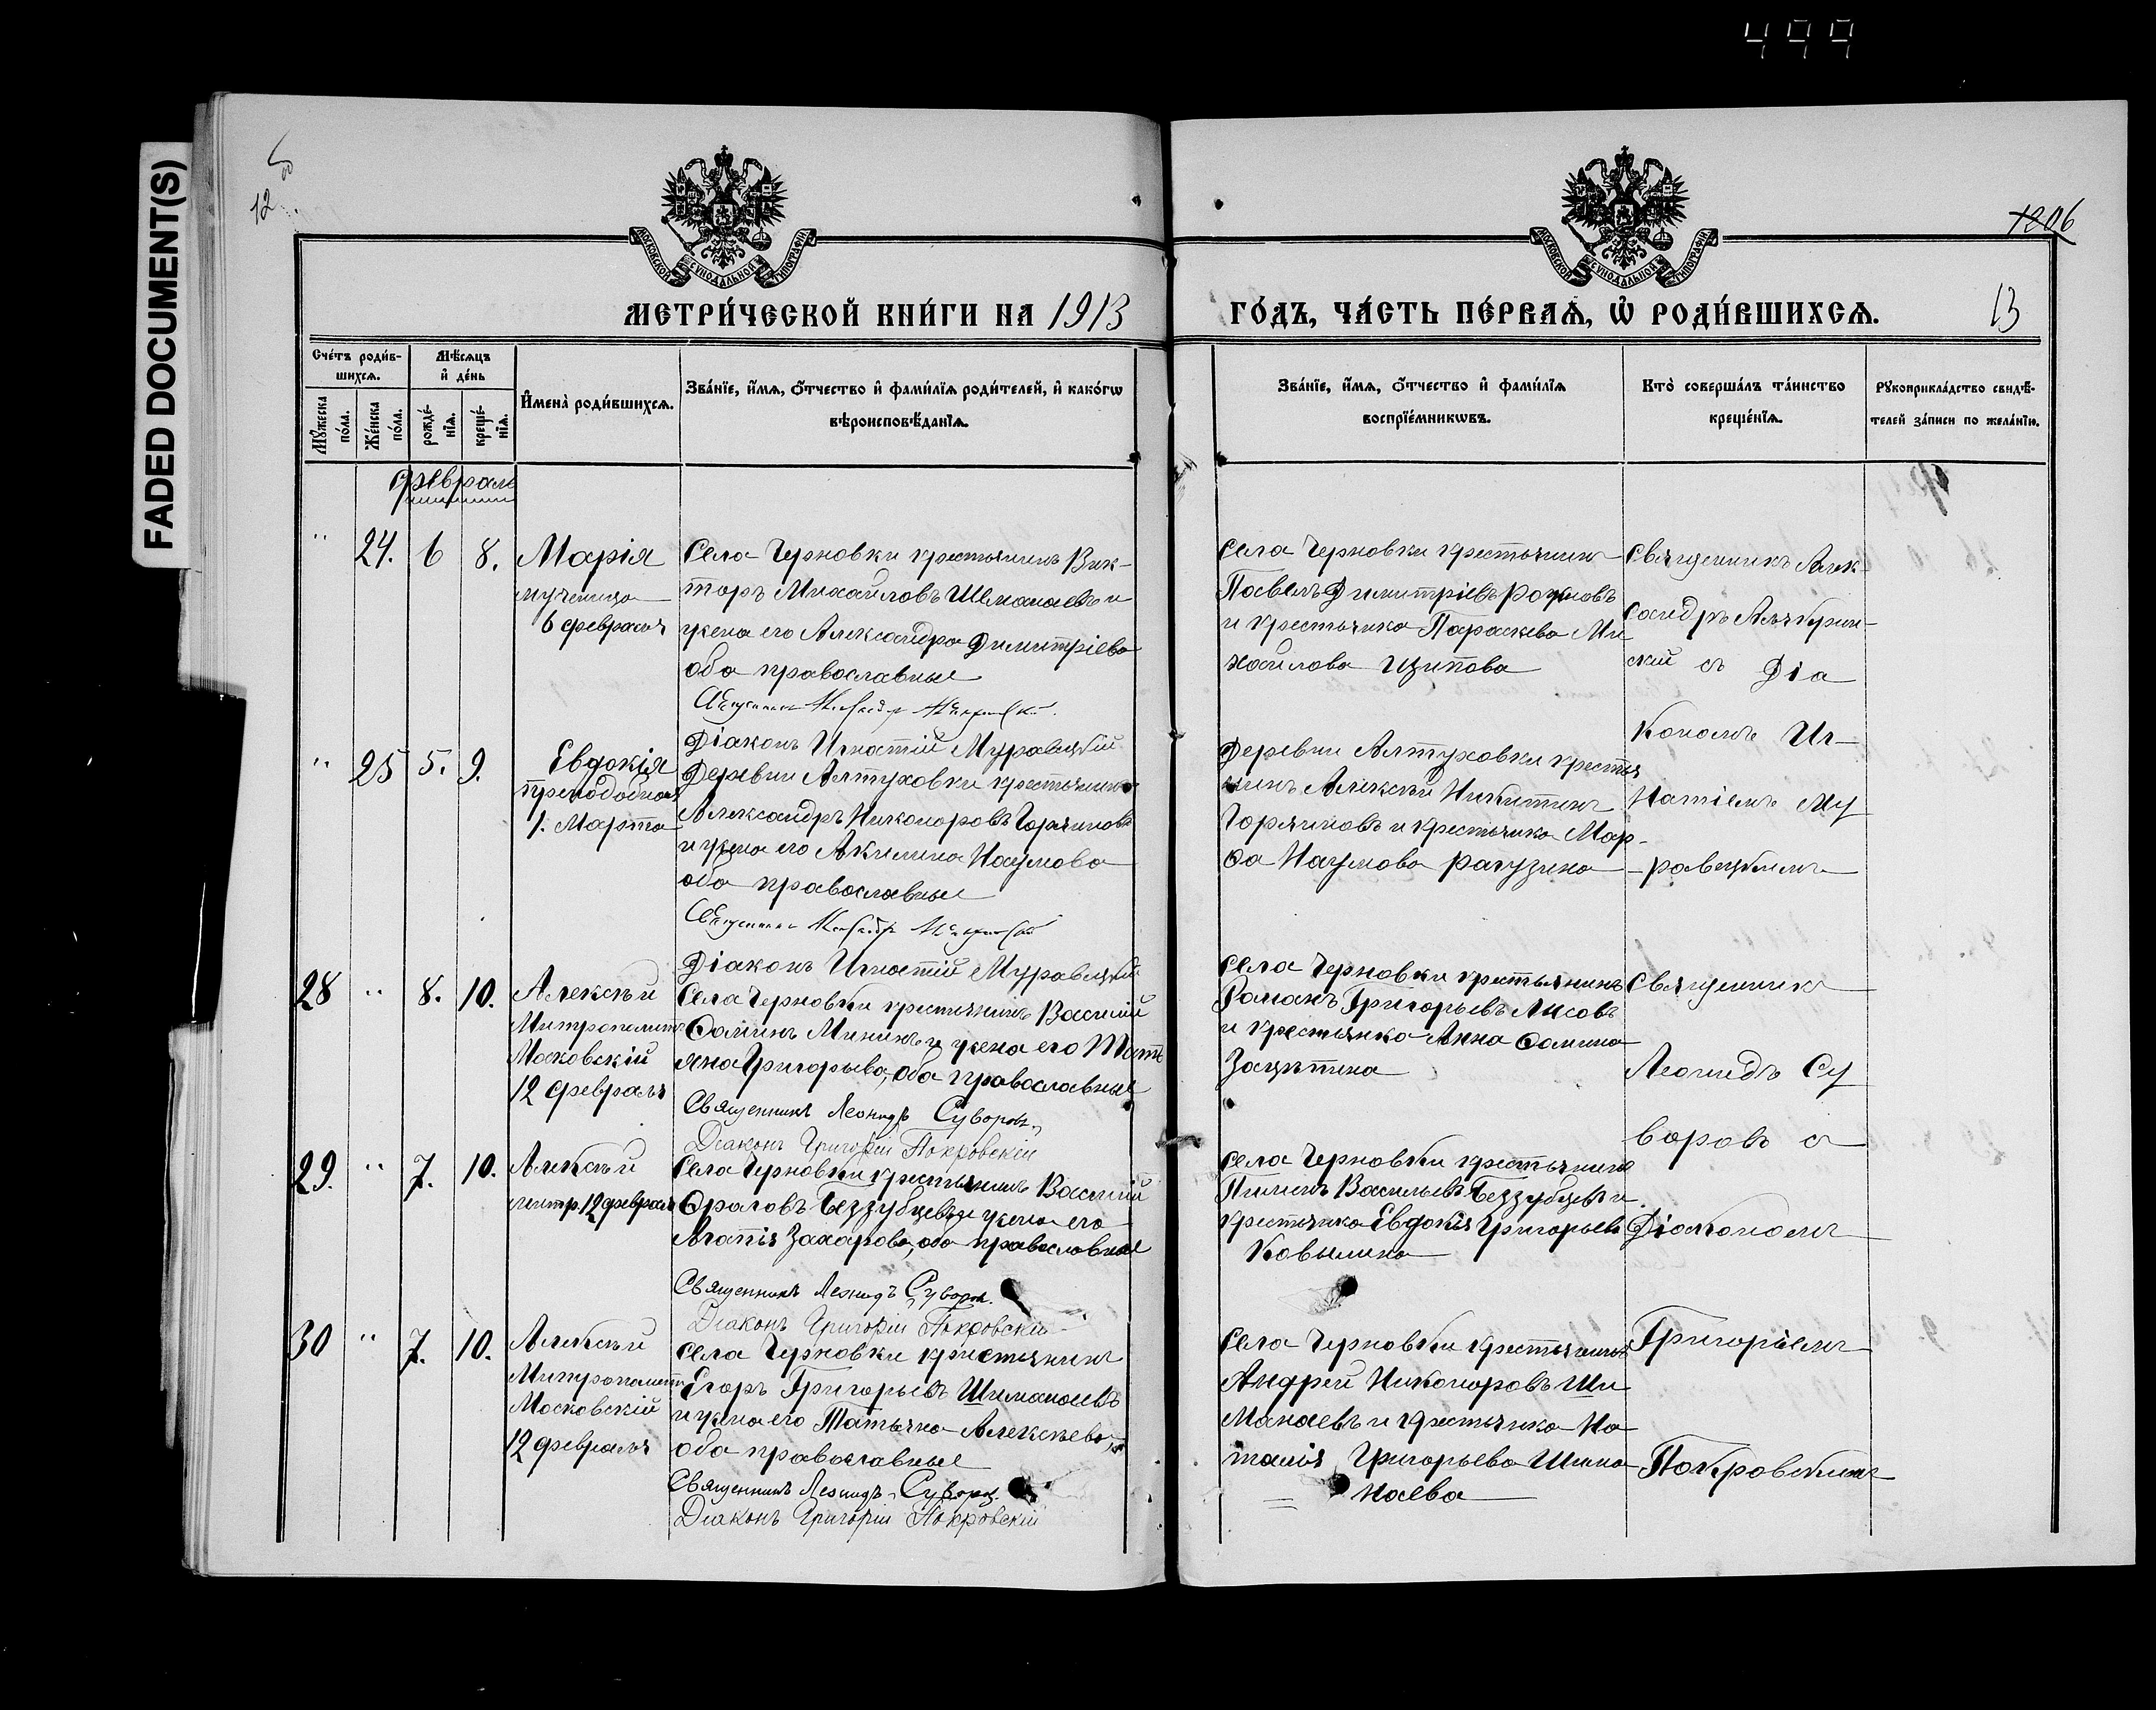 499
FADED DOCUMENT(S)
12
1206
13
МОСКОВСКОЙ СѴНОДАЛЬНОЙ ТИПОГРАФІИ
МОСКОВСКОЙ СѴНОДАЛЬНОЙ ТИПОГРАФІИ
МЕТРИ́ЧЕСКОЙ КНИ́ГИ НА 1913
ГО́ДЪ, ЧА́СТЬ ПЕ́РВАѦ, Ѽ РОДИ́ВШИХСѦ.
Сче́тъ роди́в-
шихсѧ.
Мѣ́сѧцъ
и҆ де́нь
Мꙋ́жеска
по́ла.
Же́нска
по́ла.
рожде́-
нїѧ.
креще́-
нїѧ.
И҆мена̀ роди́вшихсѧ.
Зва́нїе, и҆́мѧ, ѻ҆́тчество и҆ фами́лїѧ роди́телей, и҆ како́гѡ
вѣроисповѣ́данїѧ.
Зва́нїе, и҆́мѧ, ѻ҆́тчество и҆ фами́лїѧ
воспрїе́мникѡвъ.
Кто̀ соверша́лъ та́инство
креще́нїѧ.
Рꙋкоприкла́дство свидѣ́-
телей за́писи по жела́нїю.
Февраль
" 24. 6 8.
Марія
мученица
6 февраля
Села Черновки крестьянинъ Вик-
торъ Михайловъ Шеманаевъ и
жена его Александра Димитріева
оба православные
Священникъ
Діаконъ Игнатій Муравицкій
Села Черновки крестьянинъ
Павелъ Димитріевъ
и крестьянка Параскева Ми
хайлова
Священникъ Алек-
сандръ
скій съ Діа
кономъ Иг-
натіемъ Му
равицкимъ
" 25 5. 9.
Евдокія
преподобная
1. Марта
Деревни Алтуховки крестьянинъ
Александръ Никоноровъ Горяиновъ
и жена его Акилина Наумова
оба православные
Священникъ
Діаконъ Игнатій Муравицкій
Деревни Алтуховки крестья
нинъ Алексѣй Никитинъ
Горяиновъ и крестьянка Мар-
ѳа Наумова Рагузина
28 " 8. 10.
Алексѣй
Митрополитъ
Московскій
12 февраля
Села Черновки крестьянинъ Василій
Ѳоминъ Мининъ и жена его Тать
яна Григорьева, оба православные
Священникъ Леонидъ Суворовъ
Діаконъ Григорій Покровскій
Села Черновки крестьянинъ
Романъ Григорьевъ Лисовъ
и крестьянка Анна Ѳомина
Зацепина
Священникъ
Леонидъ Су
воровъ съ
Діакономъ
Григоріемъ
Покровскимъ
29. " 7. 10.
Алексѣй
митр. 12 февраля
Села Черновки крестьянинъ Василій
Ѳроловъ Беззубцевъ и жена его
Агапія Захарова, оба православные
Священникъ Леонидъ Суворовъ.
Діаконъ Григорій Покровскій
Села Черновки крестьянинъ
Пименъ Васильевъ Беззубцевъ и
крестьянка Евдокія Григорьева
Ковылина
30 " 7. 10.
Алексѣй
Митрополитъ
Московскій
12 февраля
Села Черновки крестьянинъ
Егоръ Григорьевъ Шиманаевъ
и жена его Татьяна Алексѣева,
оба православные
Священникъ Леонидъ Суворовъ.
Діаконъ Григорій Покровскій
Села Черновки крестьянинъ
Андрей Никоноровъ Ши
манаевъ и крестьянка На
талія Григорьева Шима
наева